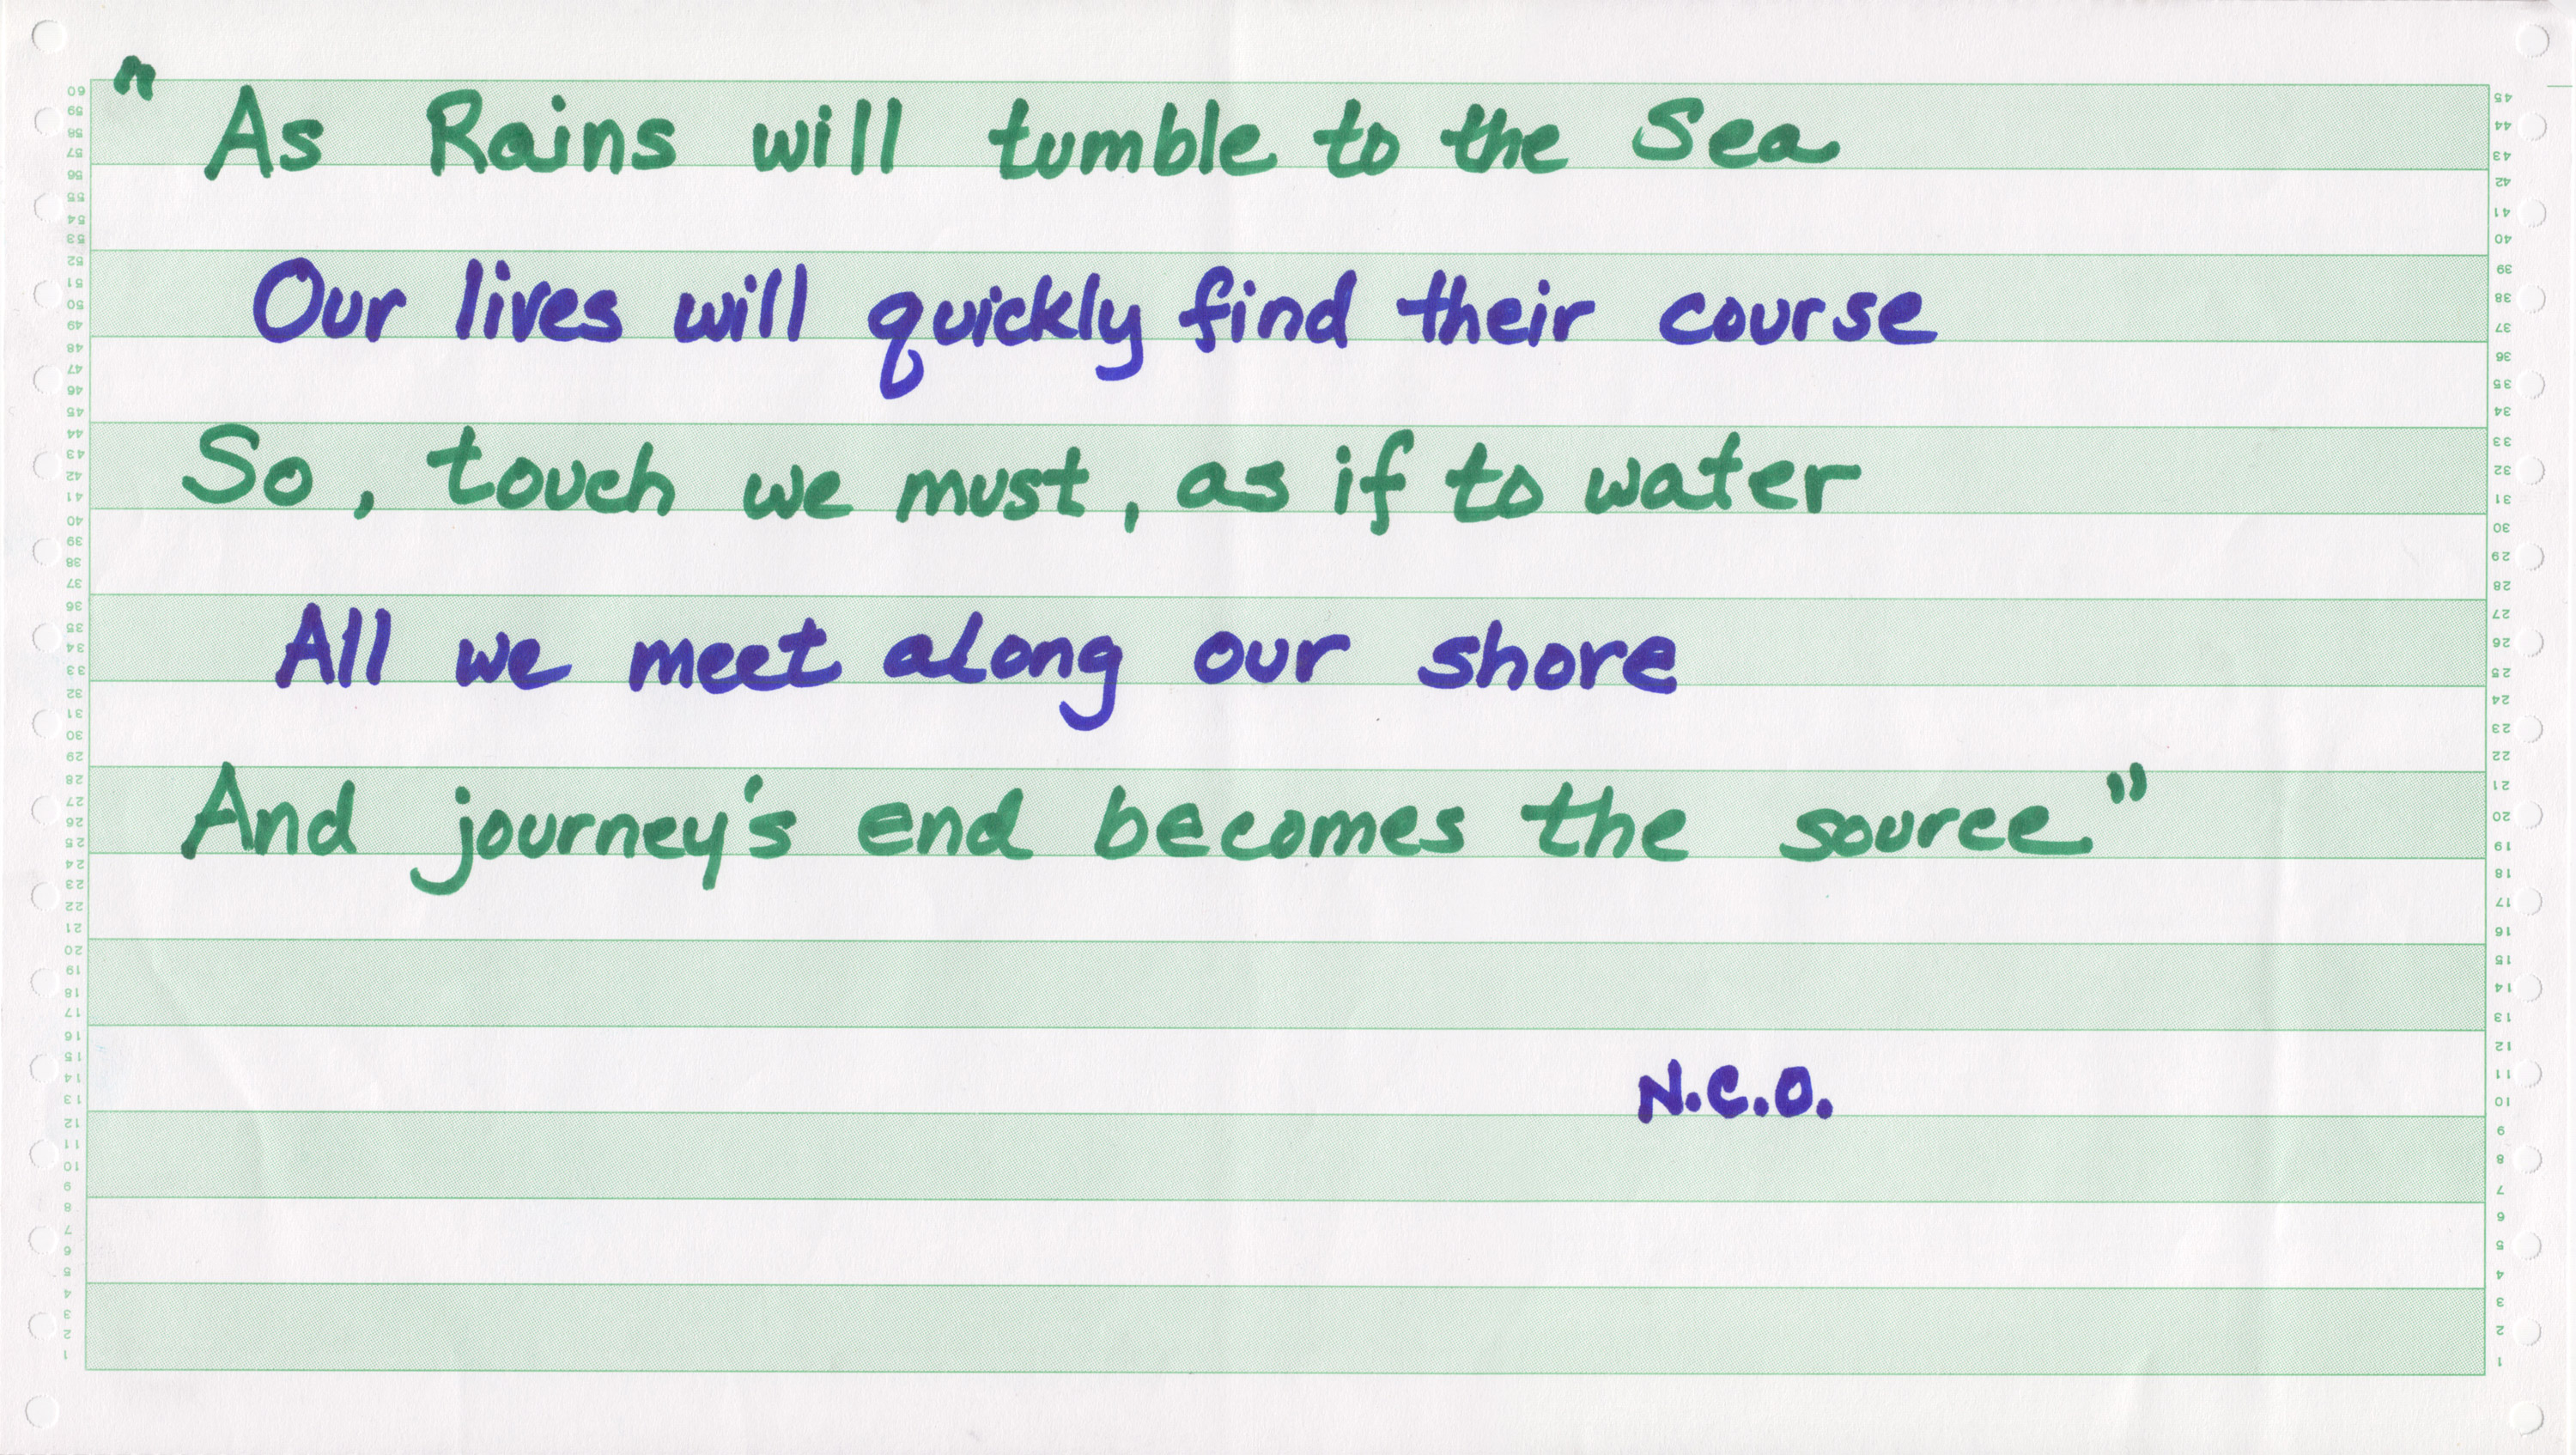 "As Rains will tumble to the Sea
Our lives will quickly find their course
So, touch we must, as if to water
All we meet along our shore
And journey's end becomes the source."
N.C.O.